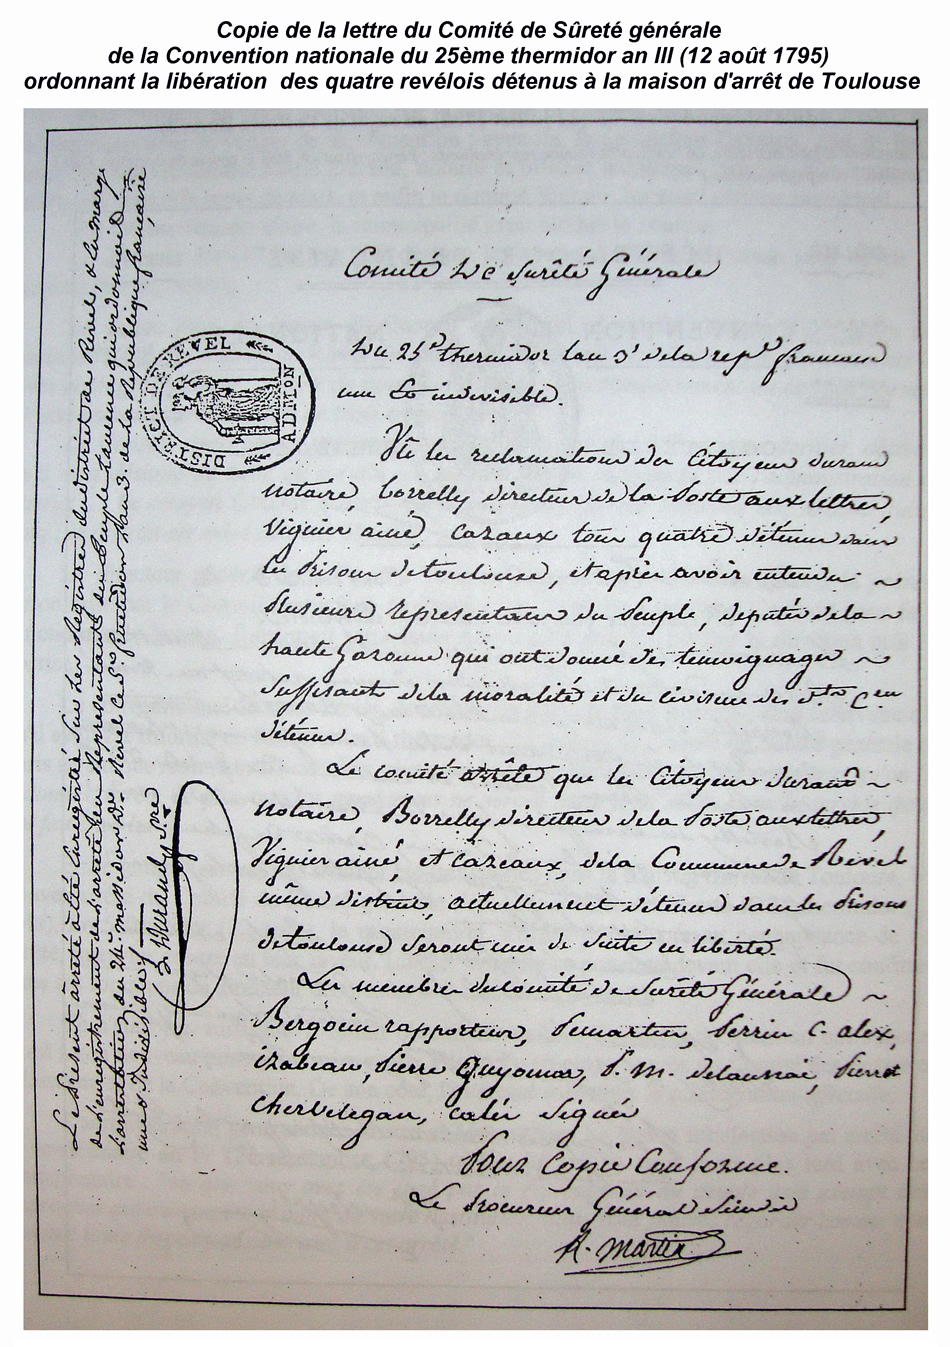 Copie de la lettre du Comité de Sûreté générale
de la Convention nationale du 25ème thermidor an III (12 août 1795)
ordonnant la libération des quatre revélois détenus à la maison d'arrêt de Toulouse
Comité de Sureté Générale
DISTRICT DE REVEL
ADMON
Du 25e thermidor lan 3e de la repque francaise
une Et indivisible.
Vu les reclamations des Citoyens durand
notaire, borrelly directeur de la Poste aux lettres,
Viguier ainé, cazaux tous quatre détenus dans
les Prisons de toulouse, et après avoir entendu
Plusieurs representans du Peuple, députés de la
haute Garonne qui ont donné des temoignages
suffisant de la moralité et du civisme des dts Cens
détenus.
Le comité arrête que les Citoyens durand
notaire, Borrelly directeur de la Poste aux lettres,
Viguier ainé, et cazeaux, de la Commune de Révél
même district, actuellement détenus dans les Prisons
de toulouse seront mis de suite en liberté.
Les membres du Comité de Sureté Générale
Bergoein rapporteur, Pemartin, Perrin C. alex,
izabeau, Pierre Guyomar, P. M. delaunai, Pierret
calés signés
Pour Copie Conforme.
Le Procureur Général Sindic
A. Martin
Le Présent àrrêté à été Enrégistré Sur Les Régistres du district de Revel, & la marge
de L'enregistrement de L'arreté du Représentant du Peuple Laurence qui ordonnoit
L'arrestation du 24e messidor Dr Revel Ce 5e fructidor L'an 3e de La République française
une & Indivisible
Durand